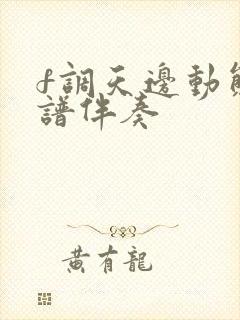 f調天邊動態
譜伴奏
黃有龍